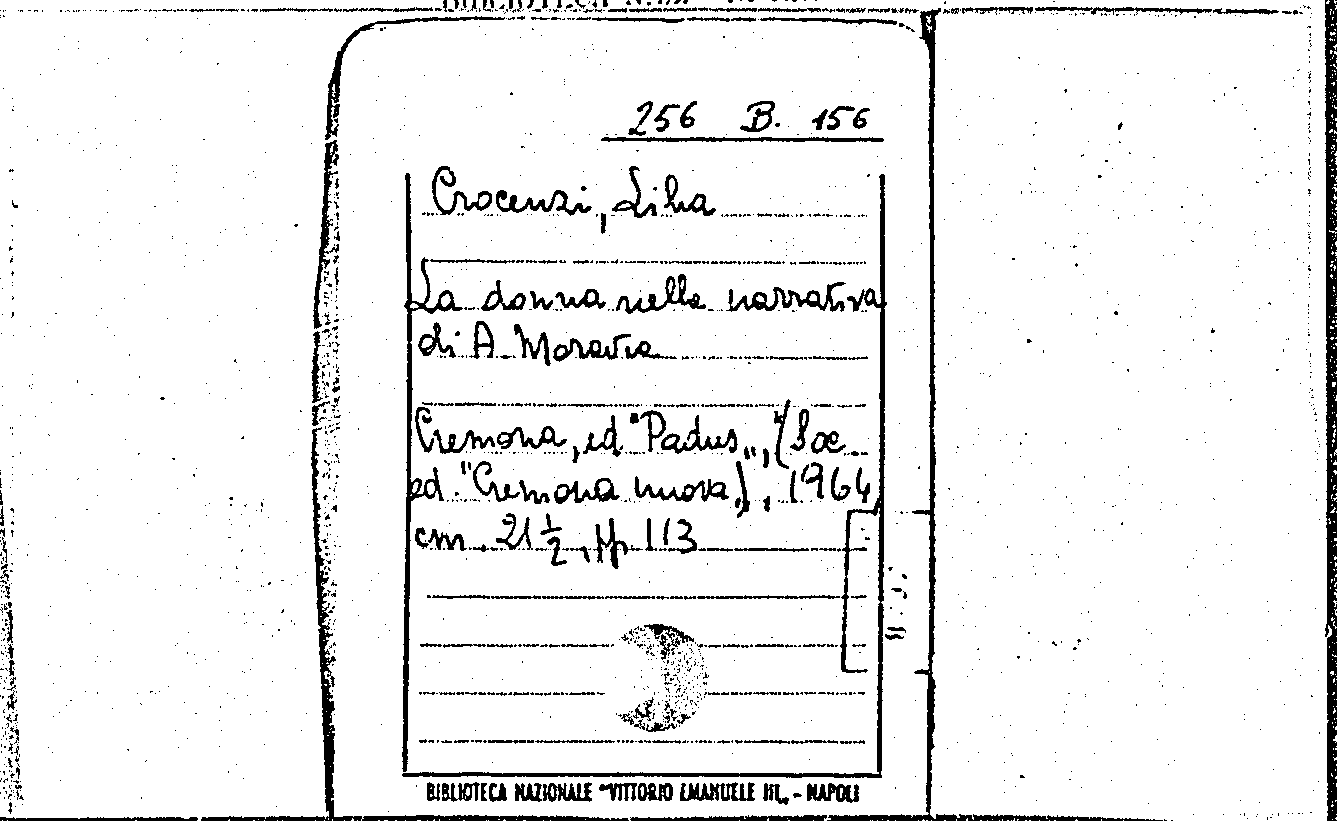 256 B. 156
Crocenzi, Lilia
La donna nella narrativa
di A. Moravia
Cremona, ed "Padus", (Soc.
ed. "Cremona nuova"), 1964,
cm. 21 ½, pp. 113
BIBLIOTECA NAZIONALE "VITTORIO EMANUELE III" - NAPOLI